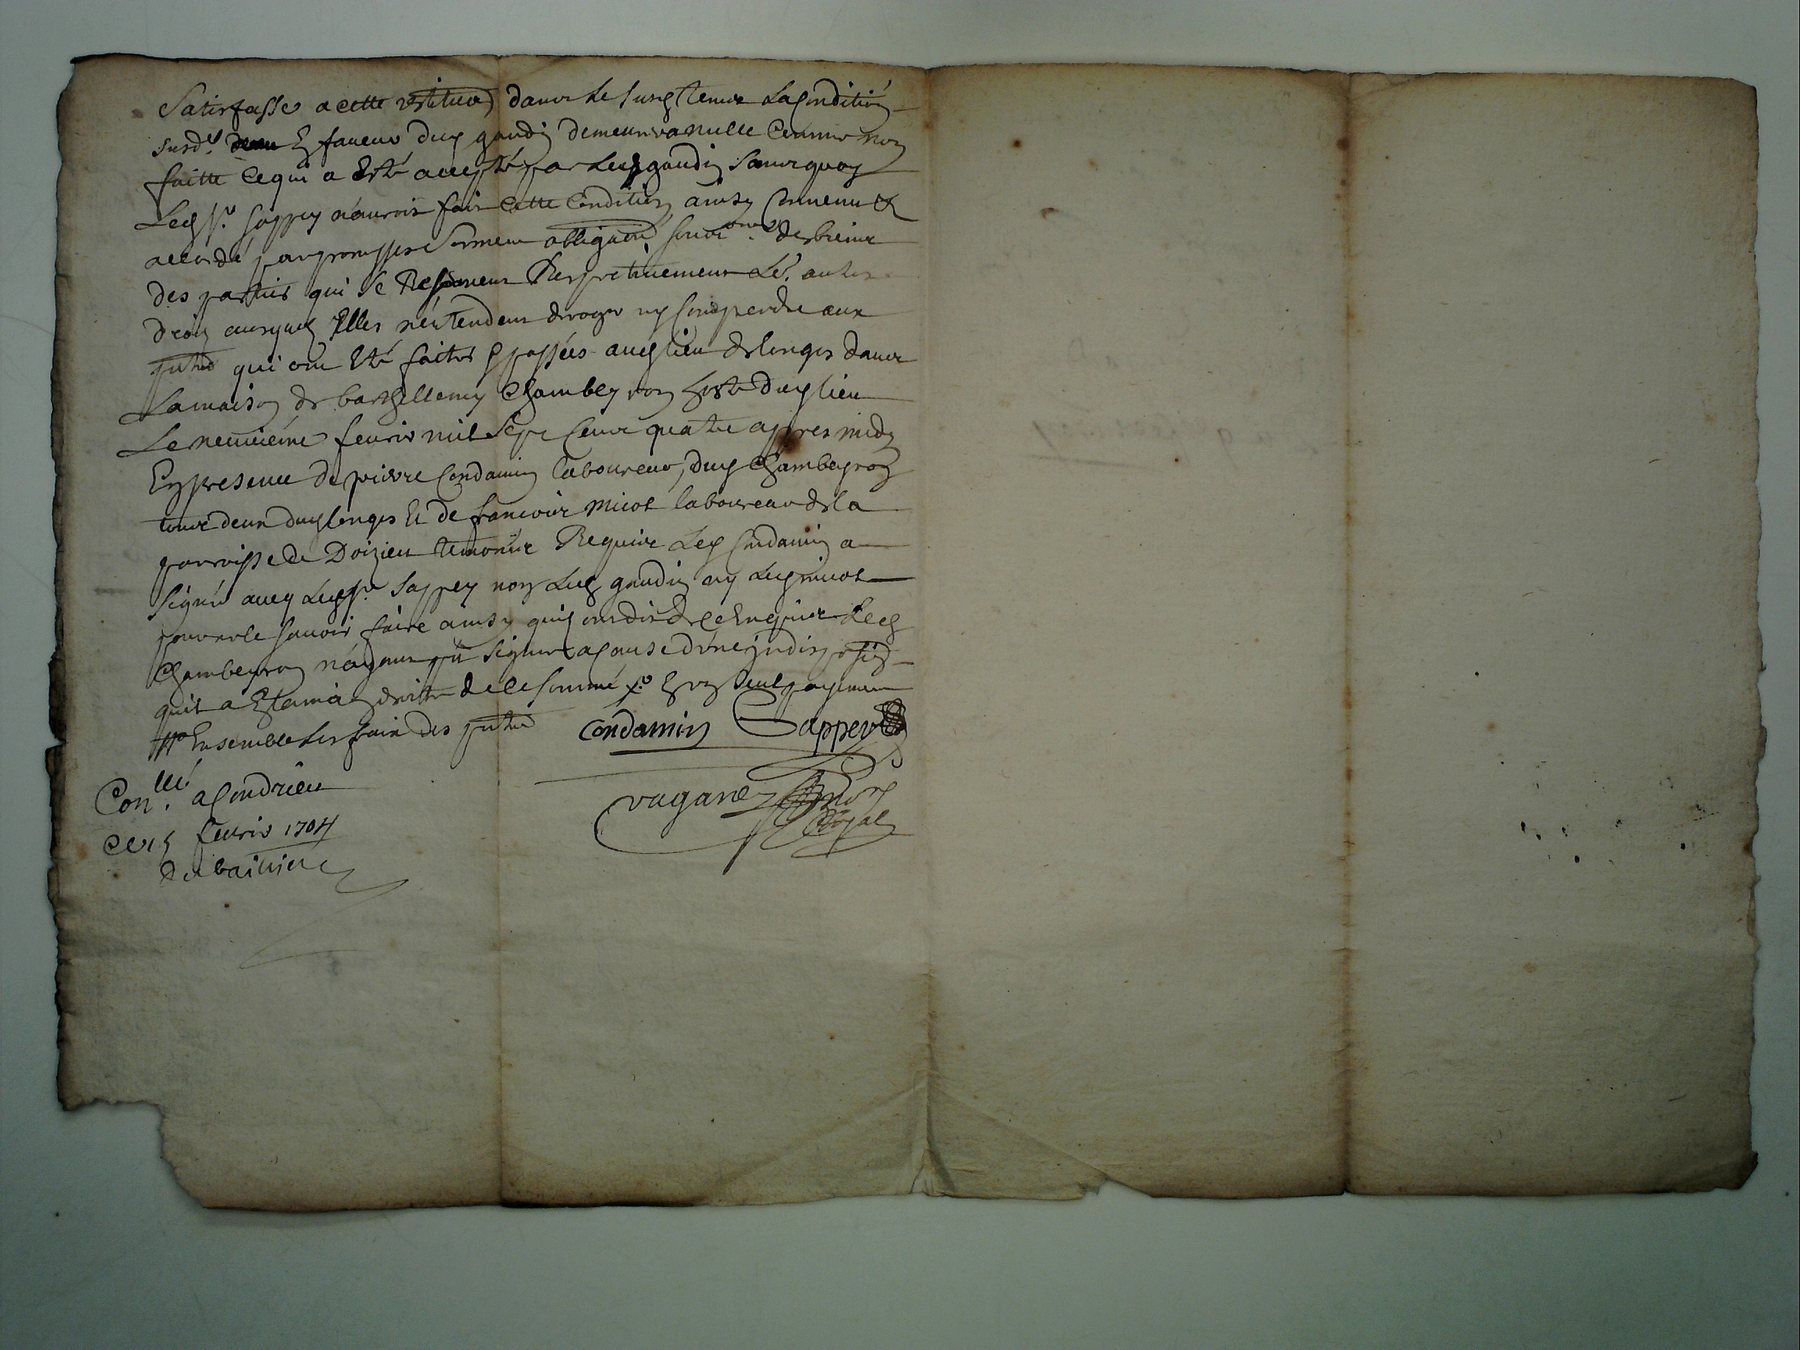 Satisfasse a cette restitu̅o̅n dans le susd temps la condition
susd.e en faveur dud gaudin demeurera nulle comme non
faitte ce qui a esté accepté par led gaudin sans quoy
led s.r sappey n'auroit fait cette condition ainsy convenu &
accordé par promesse serment obliga̅o̅n de biens
des parties qui se reservent respectivement les autres
droits ausquels elles n'entendent deroger ny
pn̅t̅e̅s qui ont esté faites & passées aud lieu de longes dans
la maison de barthellemy chambeyron hoste dud lieu
le neuvieme fevrier mil sept cents quatre apres midy
En presence de pierre condamin laboureur, dud chambeyron
tous deux dud longes et de francois micol laboureur de la
parroisse de Doizieu temoins Requis led condamin a
signé avec led s.r sappey non led gaudin ny led micol
pour ne le savoir faire ainsy quils ont dit de ce enquis led
chambeyron n'ayant pû signer a cause d'une indisposi̅o̅n
quil a En la main droitte de ce sommé
Ensemble les frais des pn̅t̅e̅s condamin Sappey
Con.llé a Condrieu
ce 15 fevrier 1704
vaganey
No.re Royal